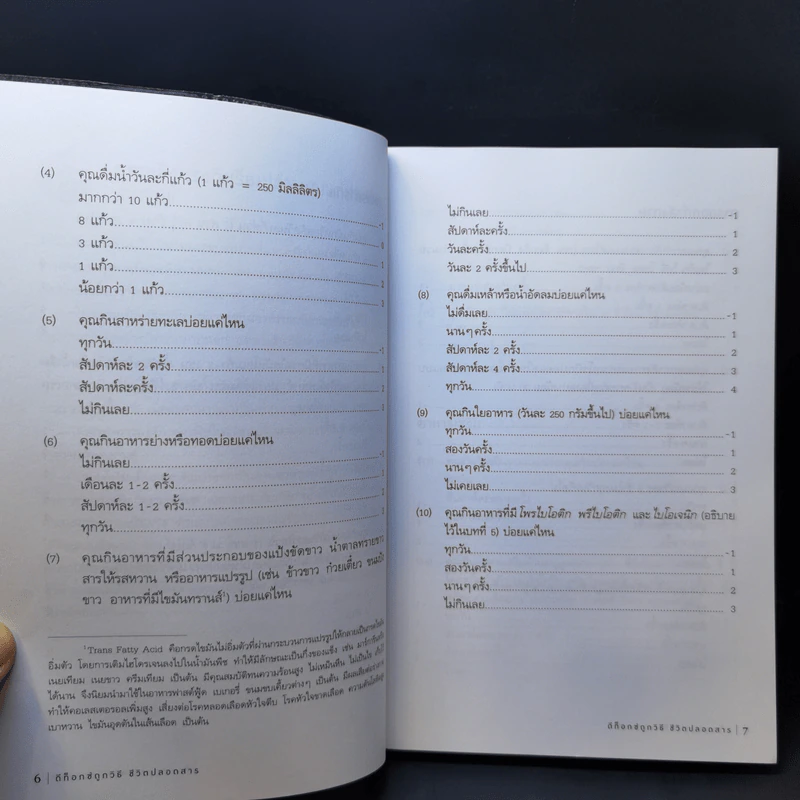 (4) คุณดื่มน้ำวันละกี่แก้ว (1 แก้ว = 250 มิลลิลิตร)
มากกว่า 10 แก้ว -1
8 แก้ว
3 แก้ว 1
1 แก้ว
น้อยกว่า 1 แก้ว 3
(5) คุณกินสาหร่ายทะเลบ่อยแค่ไหน
ทุกวัน -1
สัปดาห์ละ 2 ครั้ง
สัปดาห์ละครั้ง
ไม่กินเลย
(6) คุณกินอาหารย่างหรือทอดบ่อยแค่ไหน
ไม่กินเลย
เดือนละ 1-2 ครั้ง
สัปดาห์ละ 1-2 ครั้ง
ทุกวัน
(7) คุณกินอาหารที่มีส่วนประกอบของแป้งขัดขาว น้ำตาลทรายขาว
สารให้รสหวาน หรืออาหารแปรรูป (เช่น ข้าวขาว ก๋วยเตี๋ยว
ขาว อาหารที่มีไขมันทรานส์¹) บ่อยแค่ไหน
¹Trans Fatty Acid คือกรดไขมันไม่อิ่มตัวที่ผ่านกระบวนการแปรรูปให้กลายเป็น
อิ่มตัว โดยการเติมไฮโดรเจนลงไปในน้ำมันพืช ทำให้มีลักษณะเป็นกึ่งของแข็ง เช่น
เนยเทียม เนยขาว ครีมเทียม เป็นต้น มีคุณสมบัติทนความร้อนสูง ไม่เหม็นหืน ไม่เป็นไข
ได้นาน จึงนิยมนำมาใช้ในอาหารฟาสต์ฟู้ด เบเกอรี่ ขนมขบเคี้ยวต่างๆ เป็นต้น
ทำให้คอเลสเตอรอลเพิ่มสูง เสี่ยงต่อโรคหลอดเลือดหัวใจตีบ โรคหัวใจขาดเลือด
เบาหวาน ไขมันอุดตันในเส้นเลือด เป็นต้น
6 | ดีท็อกซ์ถูกวิธี ชีวิตปลอดสาร
ไม่กินเลย -1
สัปดาห์ละครั้ง 1
วันละครั้ง 2
วันละ 2 ครั้งขึ้นไป 3
(8) คุณดื่มเหล้าหรือน้ำอัดลมบ่อยแค่ไหน
ไม่ดื่มเลย -1
นานๆ ครั้ง 1
สัปดาห์ละ 2 ครั้ง 2
สัปดาห์ละ 4 ครั้ง 3
ทุกวัน 4
(9) คุณกินใยอาหาร (วันละ 250 กรัมขึ้นไป) บ่อยแค่ไหน
ทุกวัน -1
สองวันครั้ง 1
นานๆ ครั้ง 2
ไม่เคยเลย 3
(10) คุณกินอาหารที่มีโพรไบโอติก พรีไบโอติก และไบโอเจนิก (อธิบาย
ไว้ในบทที่ 5) บ่อยแค่ไหน
ทุกวัน -1
สองวันครั้ง 1
นานๆ ครั้ง 2
ไม่กินเลย 3
ดีท็อกซ์ถูกวิธี ชีวิตปลอดสาร | 7